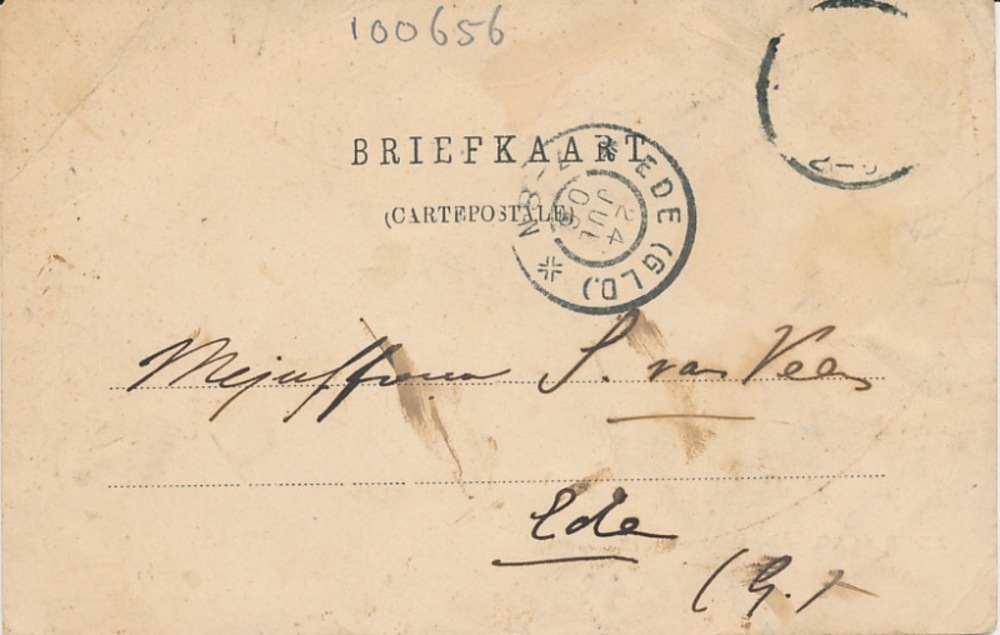 100656
BRIEFKAART
(CARTEPOSTALE)
EDE (GLD.)
24
JUL
Mejuffrouw S. van Veen
Ede
(G.)